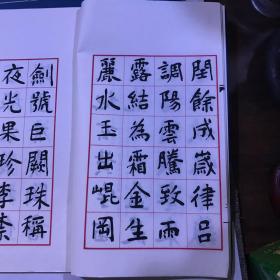 閏餘成歲律呂
調陽雲騰致雨
露結為霜金生
麗水玉出崐岡
劍號巨闕珠稱
夜光果珍李柰